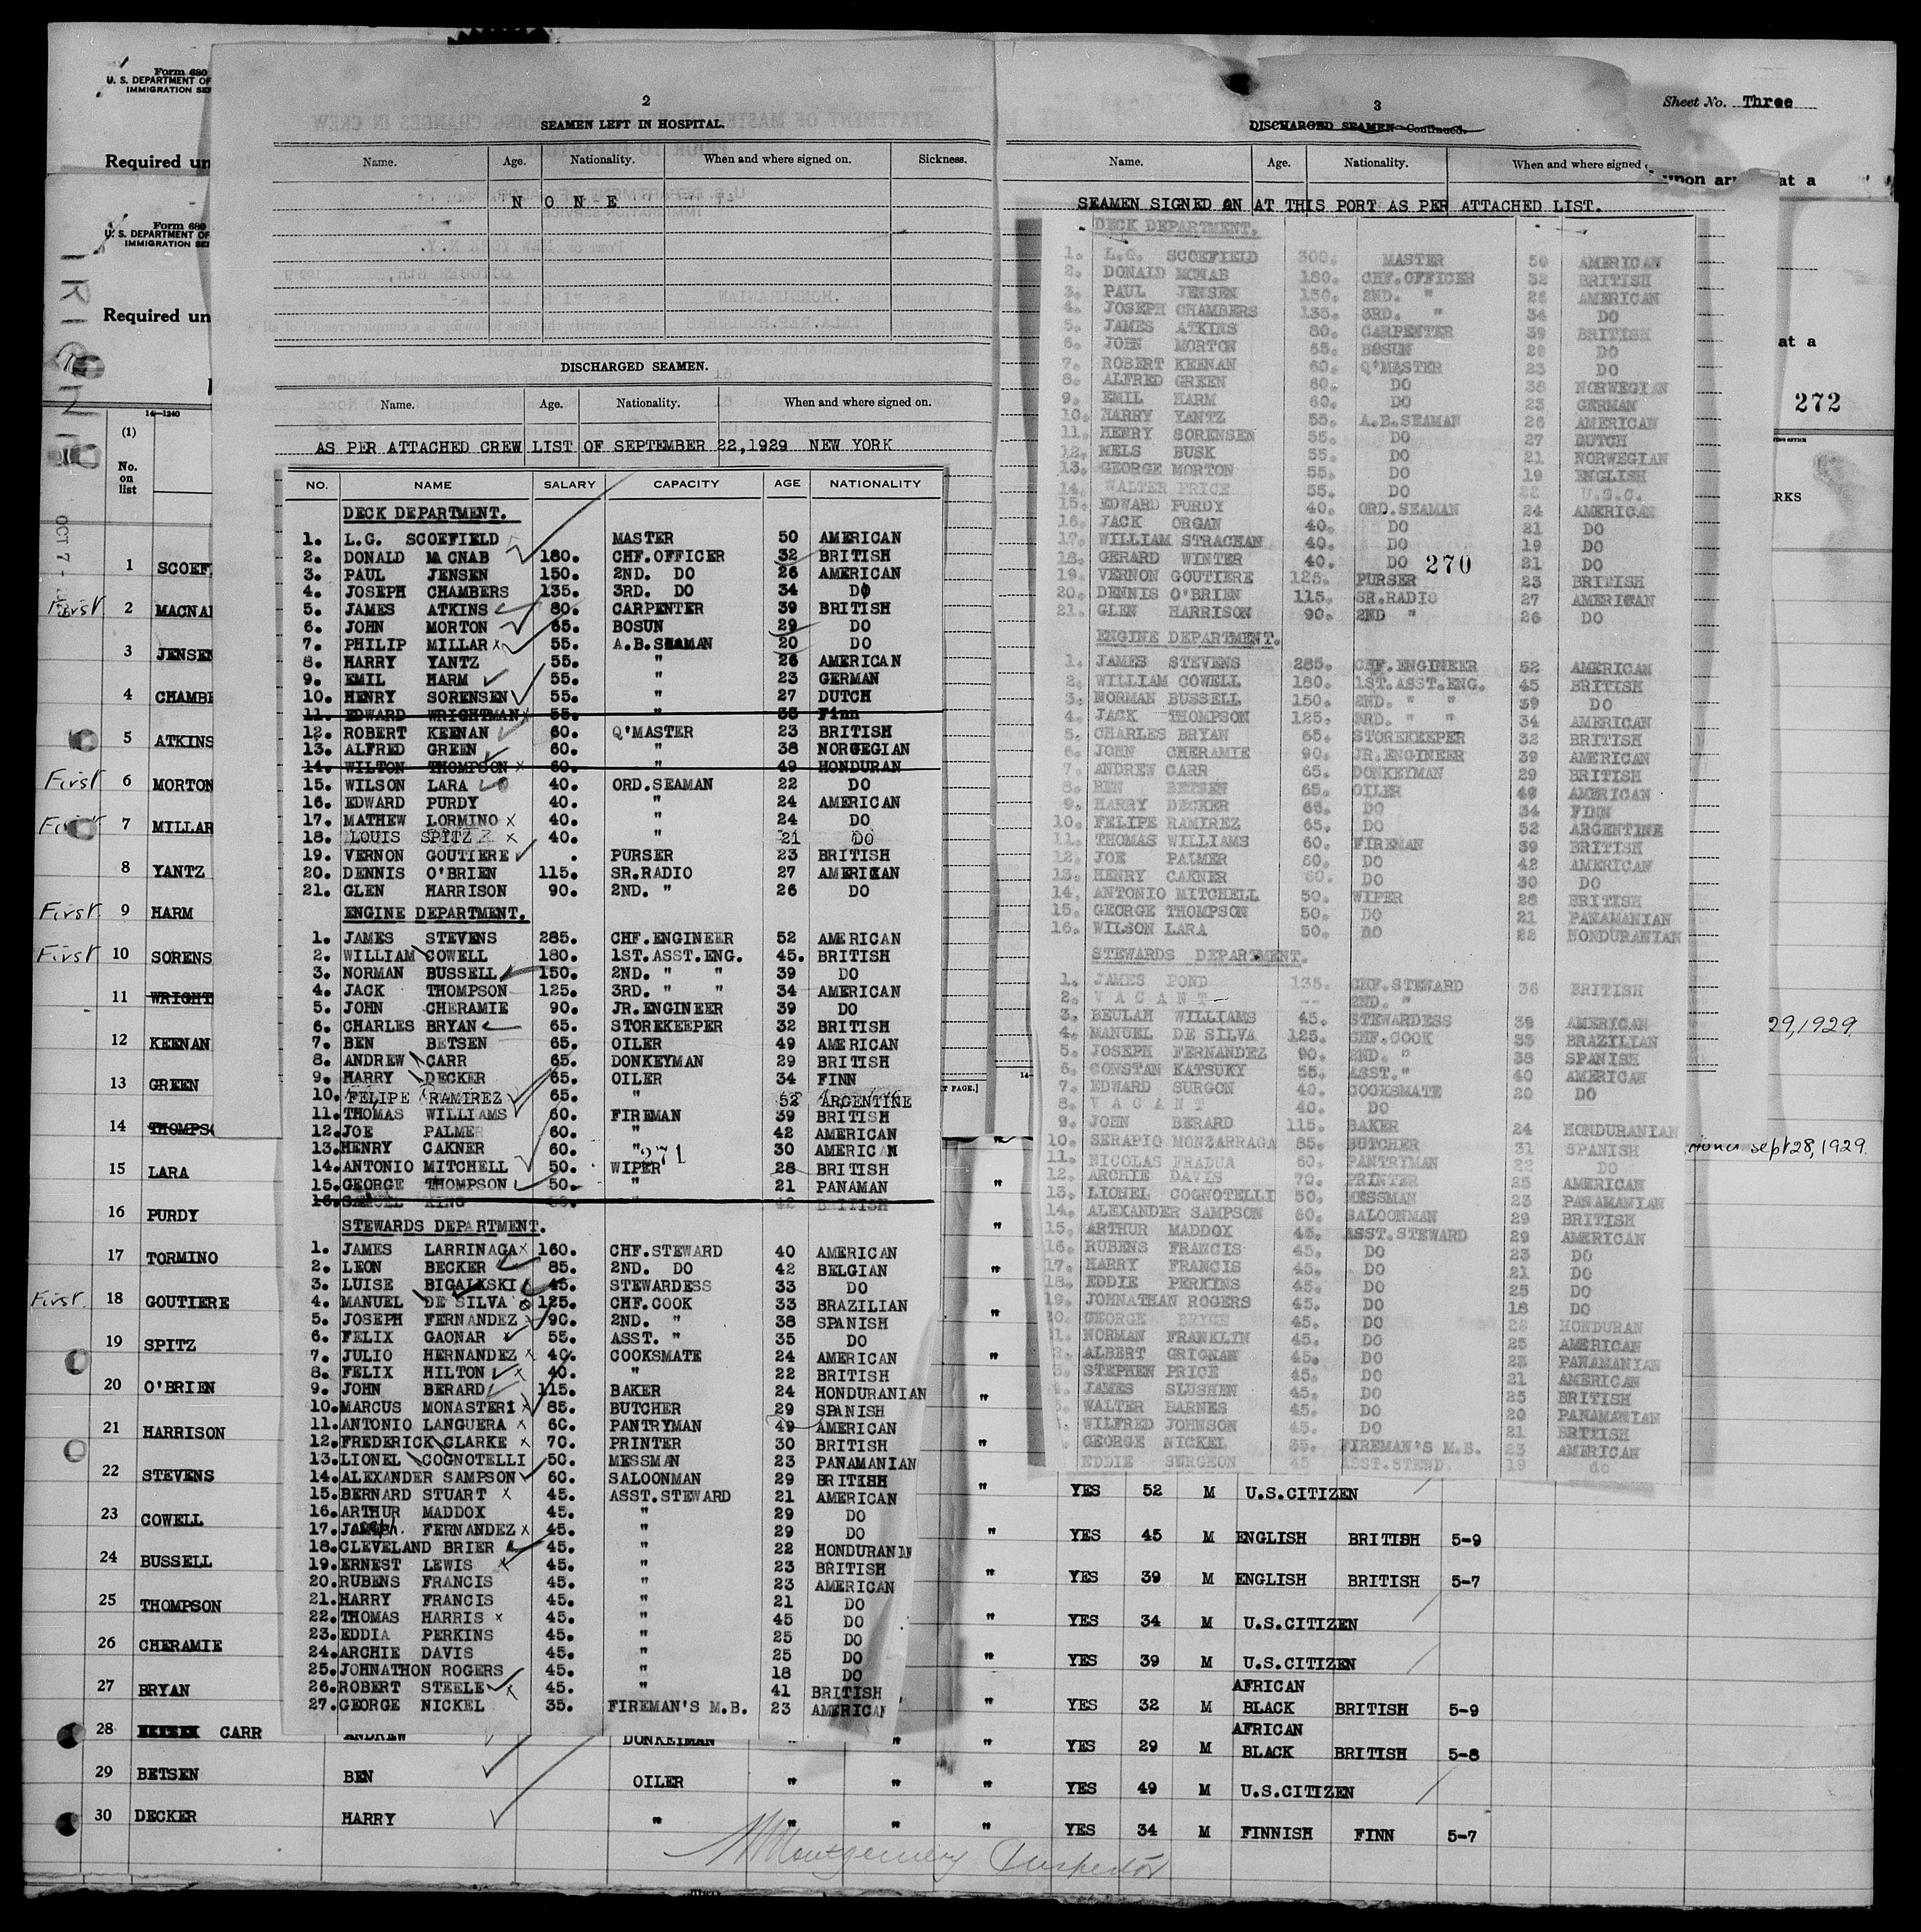 Form 680
U. S. DEPARTMENT OF
IMMIGRATION SER
Required un
Form 680
U. S. DEPARTMENT OF
IMMIGRATION SER
Required un
14—1240
(1)
No.
on
list
1 SCOEF
First 2 MACNA
3 JENSEN
4 CHAMBE
5 ATKINS
First 6 MORTON
First 7 MILLAR
8 YANTZ
First 9 HARM
First 10 SORENS
11 WRIGHT
12 KEENAN
13 GREEN
14 THOMPSO
15 LARA
16 PURDY
17 TORMINO
First. 18 GOUTIERE
19 SPITZ
20 O'BRIEN
21 HARRISON
22 STEVENS
23 COWELL
24 BUSSELL
25 THOMPSON
26 CHERAMIE
27 BRYAN
28 CARR
29 BETSEN
30 DECKER
2
SEAMEN LEFT IN HOSPITAL.
Name. Age. Nationality. When and where signed on. Sickness.
N O N E
DISCHARGED SEAMEN.
Name. Age. Nationality. When and where signed on.
AS PER ATTACHED CREW LIST OF SEPTEMBER 22,1929 NEW YORK
NO. NAME SALARY CAPACITY AGE NATIONALITY
DECK DEPARTMENT.
1. L.G. SCOEFIELD MASTER 50 AMERICAN
2. DONALD MACNAB 180. CHF.OFFICER 32 BRITISH
3. PAUL JENSEN 150. 2ND. DO 26 AMERICAN
4. JOSEPH CHAMBERS 135. 3RD. DO 34 DO
5. JAMES ATKINS 80. CARPENTER 39 BRITISH
6. JOHN MORTON 65. BOSUN 29 DO
7. PHILIP MILLAR x 55. A.B.SEAMAN 20 DO
8. HARRY YANTZ 55. " 26 AMERICAN
9. EMIL HARM 55. " 23 GERMAN
10. HENRY SORENSEN 55. " 27 DUTCH
11. EDWARD WRIGHTMAN x 55. " 35 Finn
12. ROBERT KEENAN 60. Q'MASTER 23 BRITISH
13. ALFRED GREEN 60. " 38 NORGEGIAN
14. WILTON THOMPSON x 60. " 49 HONDURAN
15. WILSON LARA 40. ORD.SEAMAN 22 DO
16. EDWARD PURDY 40. " 24 AMERICAN
17. MATHEW LORMINO x 40. " 24 DO
18. LOUIS SPITZ x 40. " 21 DO
19. VERNON GOUTIERE . PURSER 23 BRITISH
20. DENNIS O'BRIEN 115. SR.RADIO 27 AMERICAN
21. GLEN HARRISON 90. 2ND. " 26 DO
ENGINE DEPARTMENT.
1. JAMES STEVENS 285. CHF.ENGINEER 52 AMERICAN
2. WILLIAM COWELL 180. 1ST.ASST.ENG. 45. BRITISH
3. NORMAN BUSSELL 150. 2ND. " " 39 DO
4. JACK THOMPSON 125. 3RD. " " 34 AMERICAN
5. JOHN CHERAMIE 90. JR.ENGINEER 39 DO
6. CHARLES BRYAN 65. STOREKEEPER 32 BRITISH
7. BEN BETSEN 65. OILER 49 AMERICAN
8. ANDREW CARR 65. DONKEYMAN 29 BRITISH
9. HARRY DECKER 65. OILER 34 FINN
10. FELIPE RAMIREZ 65. " 52 ARGENTINE
11. THOMAS WILLIAMS 60. FIREMAN 39 BRITISH
12. JOE PALMER 60. " 42 AMERICAN
13. HENRY CAKNER 60. " 30 AMERICAN
271
14. ANTONIO MITCHELL 50. WIPER 28 BRITISH
15. GEORGE THOMPSON 50. " 21 PANAMAN
16. SAMUEL KING 50. " 42 BRITISH
STEWARDS DEPARTMENT.
1. JAMES LARRINAGA x 160. CHF.STEWARD 40 AMERICAN
2. LEON BECKER 85. 2ND. DO 42 BELGIAN
3. LUISE BIGALKSKI 45. STEWARDESS 33 DO
4. MANUEL DE SILVA 125. CHF.COOK 33 BRAZILIAN
5. JOSEPH FERNANDEZ 90. 2ND. " 38 SPANISH
6. FELIX GAONAR 55. ASST. " 35 DO
7. JULIO HERNANDEZ x 40. COOKSMATE 24 AMERICAN
8. FELIX HILTON x 40. " 22 BRITISH
9. JOHN BERARD 115. BAKER 24 HONDURANIAN
10. MARCUS MONASTERI x 85. BUTCHER 29 SPANISH
11. ANTONIO LANGUERA x 60. PANTRYMAN 49 AMERICAN
12. FREDERICK CLARKE x 70. PRINTER 30 BRITISH
13. LIONEL COGNOTELLI 50. MESSMAN 23 PANAMANIAN
14. ALEXANDER SAMPSON 60. SALOONMAN 29 BRITISH
15. BERNARD STUART x 45. ASST.STEWARD 21 AMERICAN
16. ARTHUR MADDOX 45. " 29 DO
17. Joseph. FERNANDEZ x 45. " 29 DO
18. CLEVELAND BRIER 45. " 22 HONDURANIAN
19. ERNEST LEWIS x 45. " 23 BRITISH
20. RUBENS FRANCIS 45. " 23 AMERICAN
21. HARRY FRANCIS 45. " 21 DO
22. THOMAS HARRIS x 45. " 45 DO
23. EDDIA PERKINS 45. " 25 DO
24. ARCHIE DAVIS 45. " 25 DO
25. JOHNATHON ROGERS 45. " 18 DO
26. ROBERT STEELE x 45. " 41 BRITISH
27. GEORGE NICKEL 35. FIREMAN'S M.B. 23 AMERICAN
3
DISCHARGED SEAMEN—Continued.
Sheet No. Three
Name. Age. Nationality. When and where signed
upon arr at a
SEAMEN SIGNED ON AT THIS PORT AS PER ATTACHED LIST.
DECK DEPARTMENT.
1. L.G. SCOEFIELD 300. MASTER 50 AMERICAN
2. DONALD MCNAB 180. CHF.OFFICER 32 BRITISH
3. PAUL JENSEN 150. 2ND. " 26 AMERICAN
4. JOSEPH CHAMBERS 135. 3RD. " 34 DO
5. JAMES ATKINS 80. CARPENTER 39 BRITISH
6. JOHN MORTON 65. BOSUN 29 DO
7. ROBERT KEENAN 60. Q'MASTER 23 DO
8. ALFRED GREEN 60. DO 38 NORWEGIAN
9. EMIL HARM 60. DO 23 GERMAN
10. HARRY YANTZ 55. A.B.SEAMAN 26 AMERICAN
11. HENRY SORENSEN 55. DO 27 DUTCH
12. NELS BUSK 55. DO 21 NORWEGIAN
13. GEORGE MORTON 55. DO 19 ENGLISH
14. WALTER PRICE 55. DO 22 U.S.C.
15. EDWARD PURDY 40. ORD.SEAMAN 24 AMERICAN
16. JACK ORGAN 40. DO 21 DO
17. WILLIAM STRACHAN 40. DO 19 DO
18. GERARD WINTER 40. DO 270 21 DO
19. VERNON GOUTIERE 125. PURSER 23 BRITISH
20. DENNIS O'BRIEN 115. SR.RADIO 27 AMERICAN
21. GLEN HARRISON 90. 2ND " 26 DO
ENGINE DEPARTMENT.
1. JAMES STEVENS 285. CHF.ENGINEER 52 AMERICAN
2. WILLIAM COWELL 180. 1ST.ASST.ENG. 45 BRITISH
3. NORMAN BUSSELL 150. 2ND. " " 39 DO
4. JACK THOMPSON 125. 3RD. " " 34 AMERICAN
5. CHARLES BRYAN 65. STOREKEEPER 32 BRITISH
6. JOHN CHERAMIE 90. JR.ENGINEER 39 AMERICAN
7. ANDREW CARR 65. DONKEYMAN 29 BRITISH
8. BEN BETSEN 65. OILER 49 AMERICAN
9. HARRY DECKER 65. DO 34 FINN
10. FELIPE RAMIREZ 65. DO 52 ARGENTINE
11. THOMAS WILLIAMS 60. FIREMAN 39 BRITISH
12. JOE PALMER 60. DO 42 AMERICAN
13. HENRY CAKNER 60. DO 30 DO
14. ANTONIO MITCHELL 50. WIPER 28 BRITISH
15. GEORGE THOMPSON 50. DO 21 PANAMANIAN
16. WILSON LARA 50. DO 22 HONDURANIAN
STEWARDS DEPARTMENT.
1. JAMES POND 135. CHF.STEWARD 36 BRITISH
2. V A C A N T — -- 2ND. "
3. BEULAH WILLIAMS 45. STEWARDESS 39 AMERICAN
4. MANUEL DE SILVA 125. CHF.COOK 33 BRAZILIAN
5. JOSEPH FERNANDEZ 90. 2ND. " 38 SPANISH
6. CONSTAN KATSUKY 55. ASST. " 40 AMERICAN
7. EDWARD SURGON 40. COOKSMATE 20 DO
8. V A C A N T 40. DO
9. JOHN BERARD 115. BAKER 24 HONDURANIAN
10. SERAPIO MONZARRAGA 85. BUTCHER 31 SPANISH
11. NICOLAS FRADUA 60. PANTRYMAN 22 DO
12. ARCHIE DAVIS 70. PRINTER 25 AMERICAN
13. LIONEL COGNOTELLI 50. MESSMAN 23 PANAMANIAN
14. ALEXANDER SAMPSON 60. SALOONMAN 29 BRITISH
15. ARTHUR MADDOX 45. ASST.STEWARD 29 AMERICAN
16. RUBENS FRANCIS 45. DO 23 DO
17. HARRY FRANCIS 45. DO 21 DO
18. EDDIE PERKINS 45. DO 25 DO
19. JOHNATHAN ROGERS 45. DO 18 DO
20. GEORGE BRYCE 45. DO 28 HONDURAN
1. NORMAN FRANKLYN 45. DO 25 AMERICAN
2. ALBERT GRIGNAN 45. DO 23 PANAMANIAN
3. STEPHEN PRICE 45. DO 21 AMERICAN
4. JAMES SLUSHEN 45. DO 25 BRITISH
5. WALTER BARNES 45. DO 20 PANAMANIAN
WILFRED JOHNSON 45. DO 21 BRITISH
GEORGE NICKEL 35. FIREMAN'S M.B. 23 AMERICAN
EDDIE SURGEON 45 ASST.STEWD. 19 do
at a
272
RKS
T PAGE.]
29,1929
Sept 28, 1929.
" YES 52 M U.S.CITIZEN
" YES 45 M ENGLISH BRITISH 5-9
" YES 39 M ENGLISH BRITISH 5-7
" YES 34 M U.S.CITIZEN
" YES 39 M U.S.CITIZEN
" YES 32 M AFRICAN BLACK BRITISH 5-9
ANDREW DONKEYMAN " " " YES 29 M AFRICAN BLACK BRITISH 5-8
BEN OILER " " " YES 49 M U.S.CITIZEN
HARRY " " " " YES 34 M FINNISH FINN 5-7
Montgomery Inspector